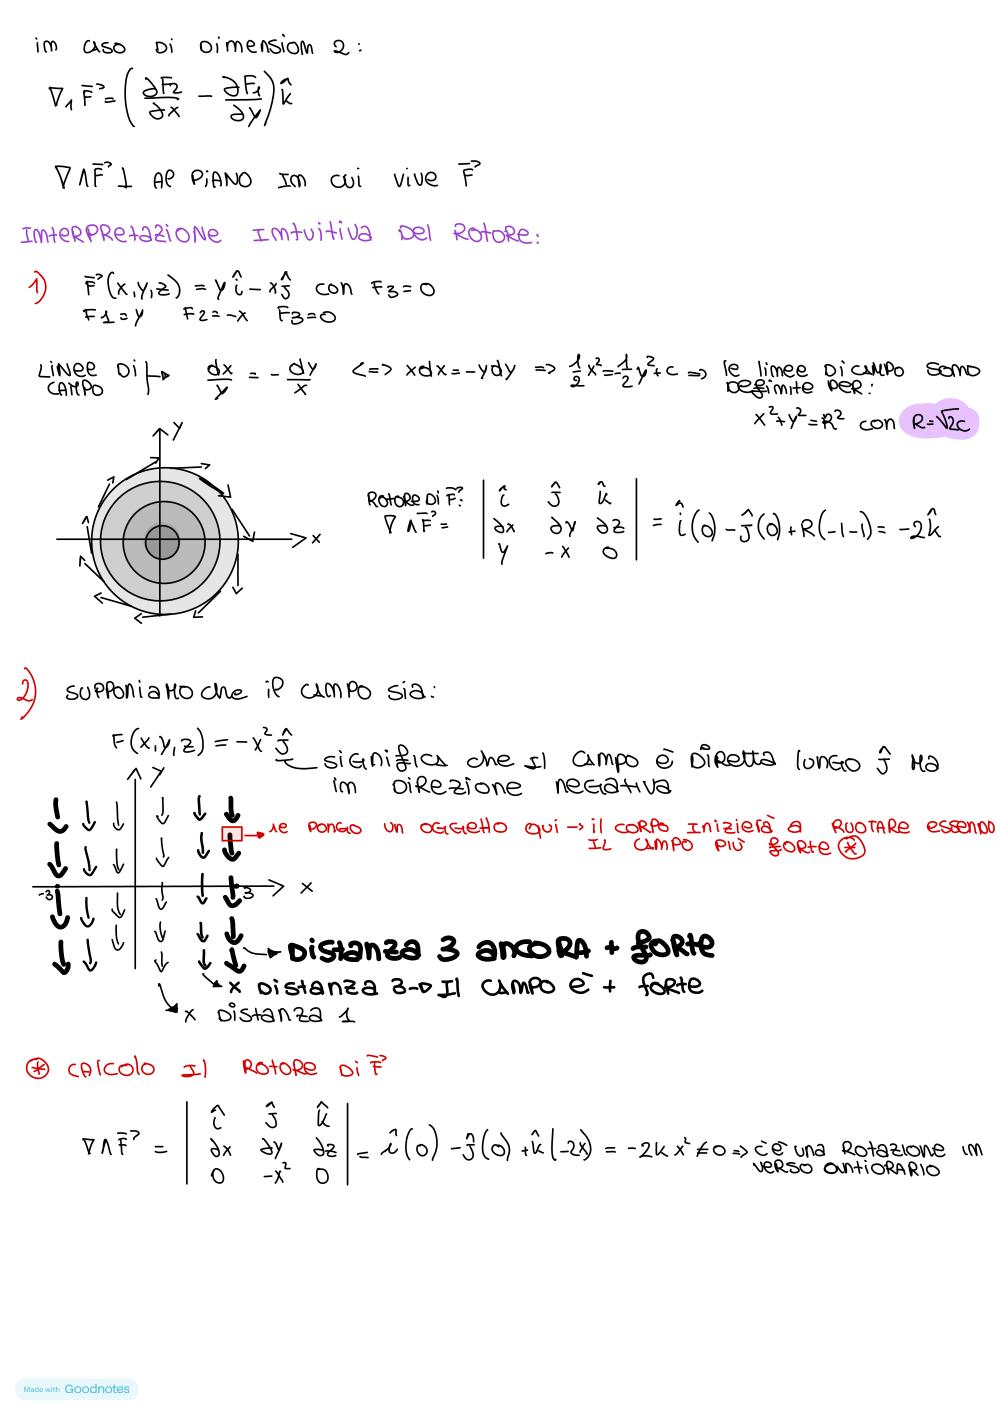 in caso Di Dimension 2:
∇∧F⃗ = (∂F2/∂x − ∂F1/∂y) k̂
∇∧F⃗ ⊥ Al PIANO IN cui vive F⃗
INTERPRETAZIONE INTUITIVA DEL ROTORE:
1) F⃗(x,y,z) = y î − x ĵ con F3=0
F1=y F2=-x F3=0
LINEE DI CAMPO dx/y = - dy/x <=> xdx=-ydy => 1/2 x²=-1/2 y²+c => le linee Di CAMPO SONO DEFINITE PER:
x²+y²=R² con R=√2c
y
x
ROTORE Di F⃗:
∇∧F⃗ = | î ĵ k̂ | ∂x ∂y ∂z | y -x 0 | = î(0) - ĵ(0) + R(-1-1) = -2k̂
2) SUPPONIAMO che il CAMPO sia:
F(x,y,z) = -x² ĵ
SIGNIFICA che Il CAMPO È DIRETTA lungo ĵ MA
in DIREZIONE NEGATIVA
y
se PONGO UN OGGETTO qui → il CORPO INIZIERÀ A RUOTARE ESSENDO
IL CAMPO PIÙ FORTE *
-3 3 x
DISTANZA 3 ANCORA + FORTE
x DISTANZA 3 → Il CAMPO È + FORTE
x DISTANZA 1
* CALCOLO Il ROTORE Di F⃗
∇∧F⃗ = | î ĵ k̂ | ∂x ∂y ∂z | 0 -x² 0 | = î(0) - ĵ(0) + k̂(-2x) = -2k x² ≠ 0 => c'è una ROTAZIONE in
VERSO ANTIORARIO
Made with Goodnotes